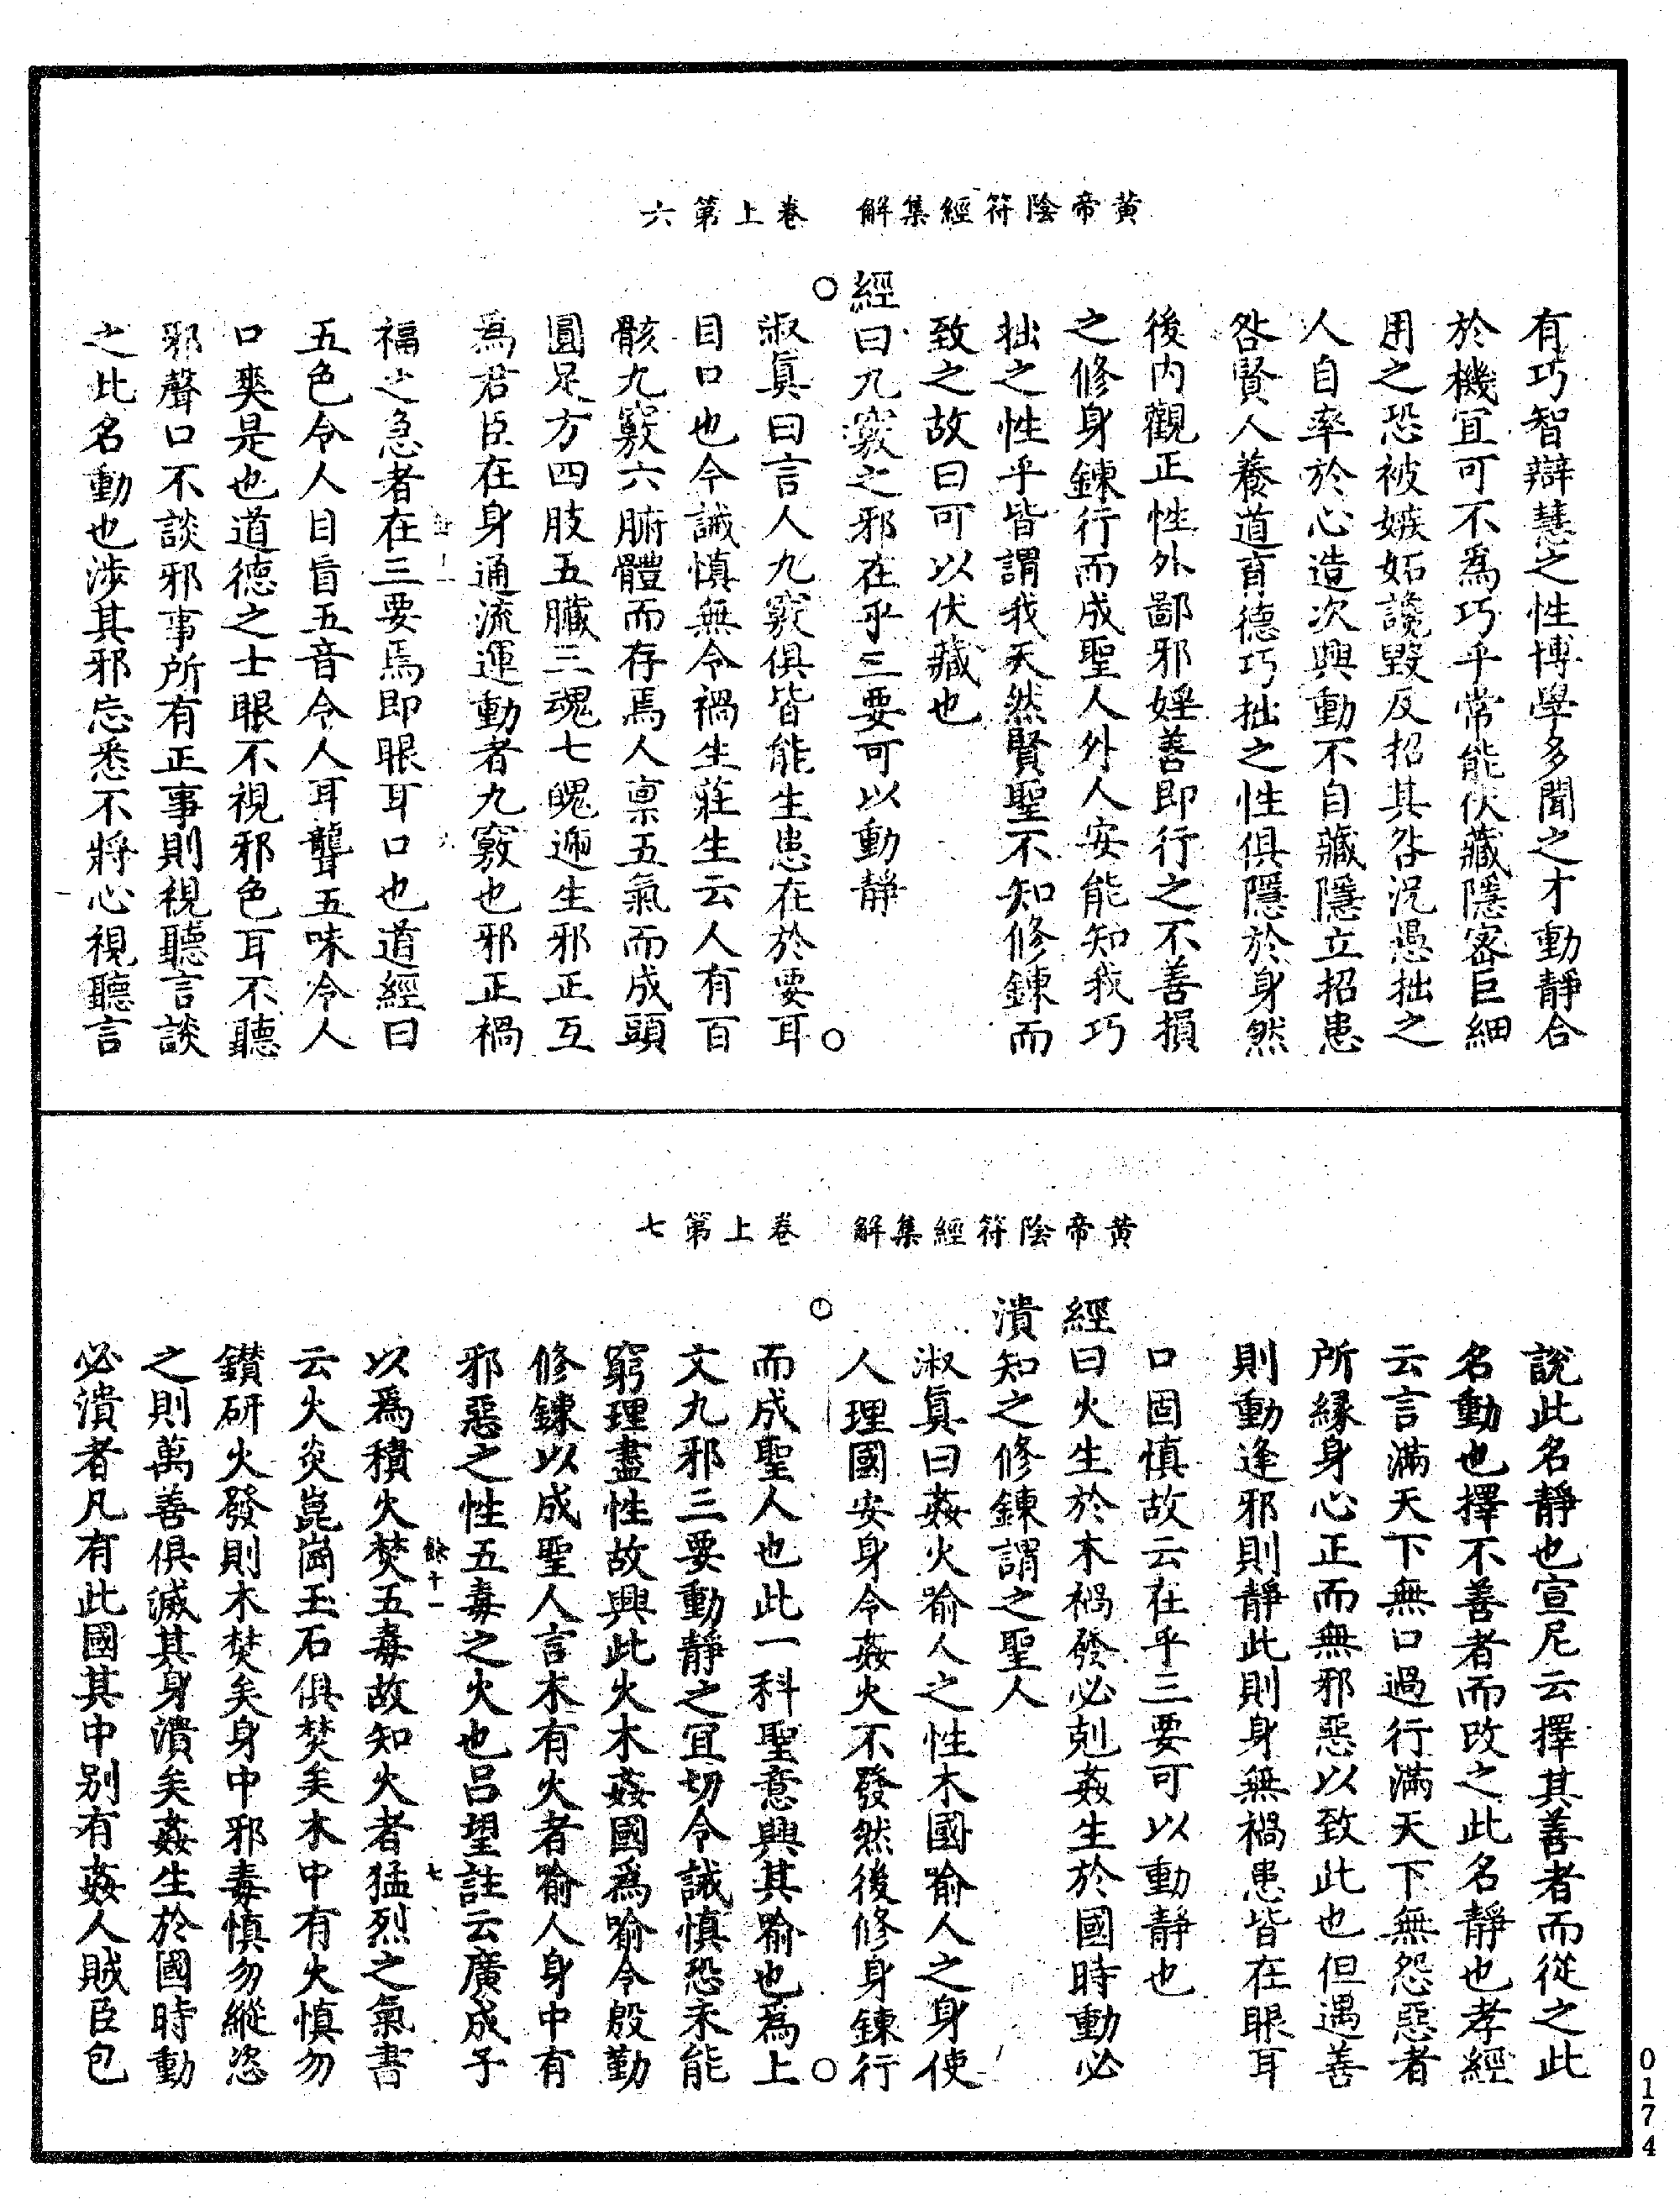 黄帝陰符經集解　卷上第六
有巧智辯慧之性博學多聞之才動靜合
於機宜可不爲巧乎常能伏藏隱密巨細
用之恐被嫉妬讒毀反招其咎況愚拙之
人自率於心造次興動不自藏隱立招患
咎賢人養道育德巧拙之性俱隱於身然
後内觀正性外鄙邪婬善即行之不善損
之修身鍊行而成聖人外人安能知我巧
拙之性乎皆謂我天然賢聖不知修鍊而
致之故曰可以伏藏也
經曰九竅之邪在乎三要可以動靜
淑眞曰言人九竅俱皆能生患在於要耳
目口也令誡慎無令禍生莊生云人有百
骸九竅六腑體而存焉人禀五氣而成頭
圓足方四肢五臟三魂七魄遞生邪正互
爲君臣在身通流運動者九竅也邪正禍
福之急者在三要焉即眼耳口也道經曰
五色令人目盲五音令人耳聾五味令人
口爽是也道德之士眼不視邪色耳不聽
邪聲口不談邪事所有正事則視聽言談
之此名動也涉其邪忘悉不將心視聽言
黄帝陰符經集解　卷上第七
說此名靜也宣尼云擇其善者而從之此
名動也擇不善者而改之此名靜也孝經
云言滿天下無口過行滿天下無怨惡者
所緣身心正而無邪惡以致此也但遇善
則動逢邪則靜此則身無禍患皆在眼耳
口固慎故云在乎三要可以動靜也
經曰火生於木禍發必剋姦生於國時動必
潰知之修鍊謂之聖人
淑眞曰姦火喻人之性木國喻人之身使
人理國安身令姦火不發然後修身鍊行
而成聖人也此一科聖意興其喻也爲上
文九邪三要動靜之宜切令誡慎恐未能
窮理盡性故興此火木姦國爲喻令殷勤
修鍊以成聖人言木有火者喻人身中有
邪惡之性五毒之火也吕望註云廣成子
以爲積火焚五毒故知火者猛烈之氣書
餘十一
七
云火炎崑崗玉石俱焚矣木中有火慎勿
鑚研火發則木焚矣身中邪毒慎勿縱恣
之則萬善俱滅其身潰矣姦生於國時動
必潰者凡有此國其中别有姦人賊臣包
0174